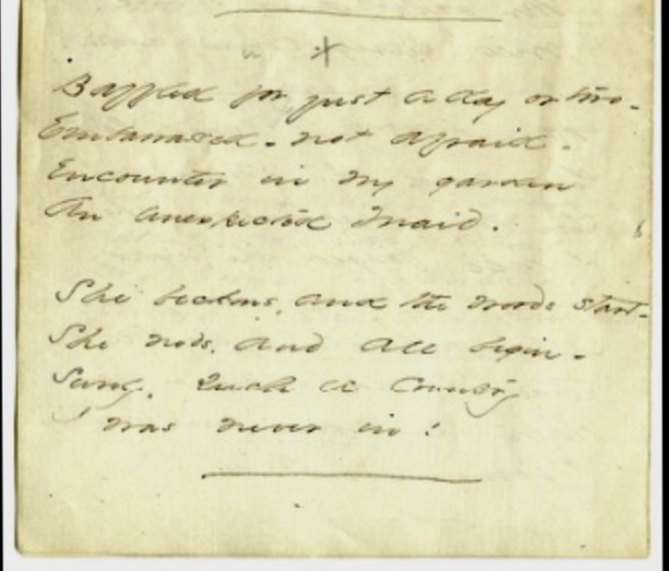 Baffled for just a day or two -
Embarrassed - not afraid -
Encounter in my garden
An unexpected Maid.
She beckons, and the woods start -
She nods, and all begin -
Surely, such a country
I was never in!